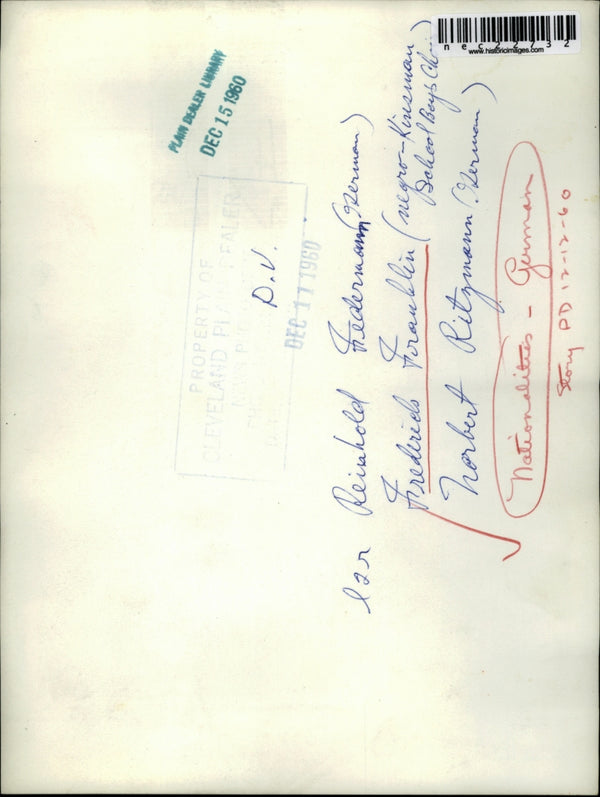 nec22732
www.historicimages.com
PLAIN DEALER LIBRARY
DEC 15 1960
PROPERTY OF
CLEVELAND PLAIN DEALER
D.V.
DEC 11 1960
l2r Reinhold Federmann (German)
Fredrick Franklin (negro-Kinsman
School Boys
Norbert Ritzmann (German)
Nationalities - German
Story PD 12-12-60